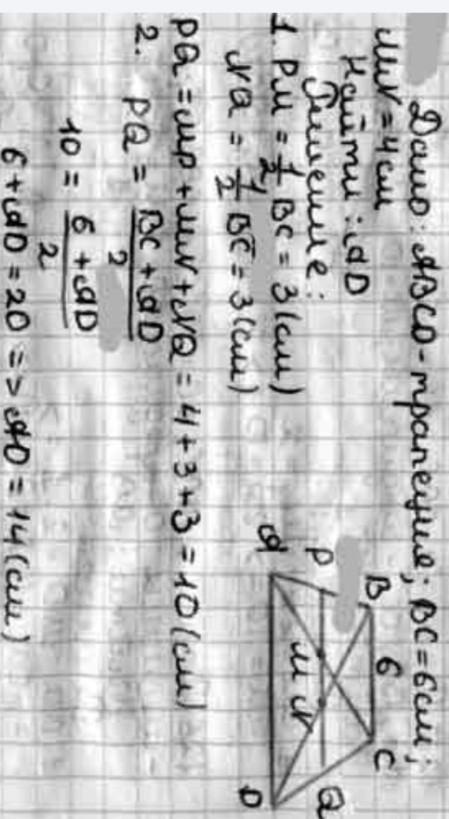 Дано: ABCD - трапеция; BC = 6 см;
MN = 4 см
Найти: AD
Решение:
1. PM = 1/2 BC = 3 (см)
NQ = 1/2 BC = 3 (см)
PQ = MP + MN + NQ = 4 + 3 + 3 = 10 (см)
2. PQ = (BC + AD)/2
10 = (6 + AD)/2
6 + AD = 20 => AD = 14 (см)
B 6 C
P M N Q
A D